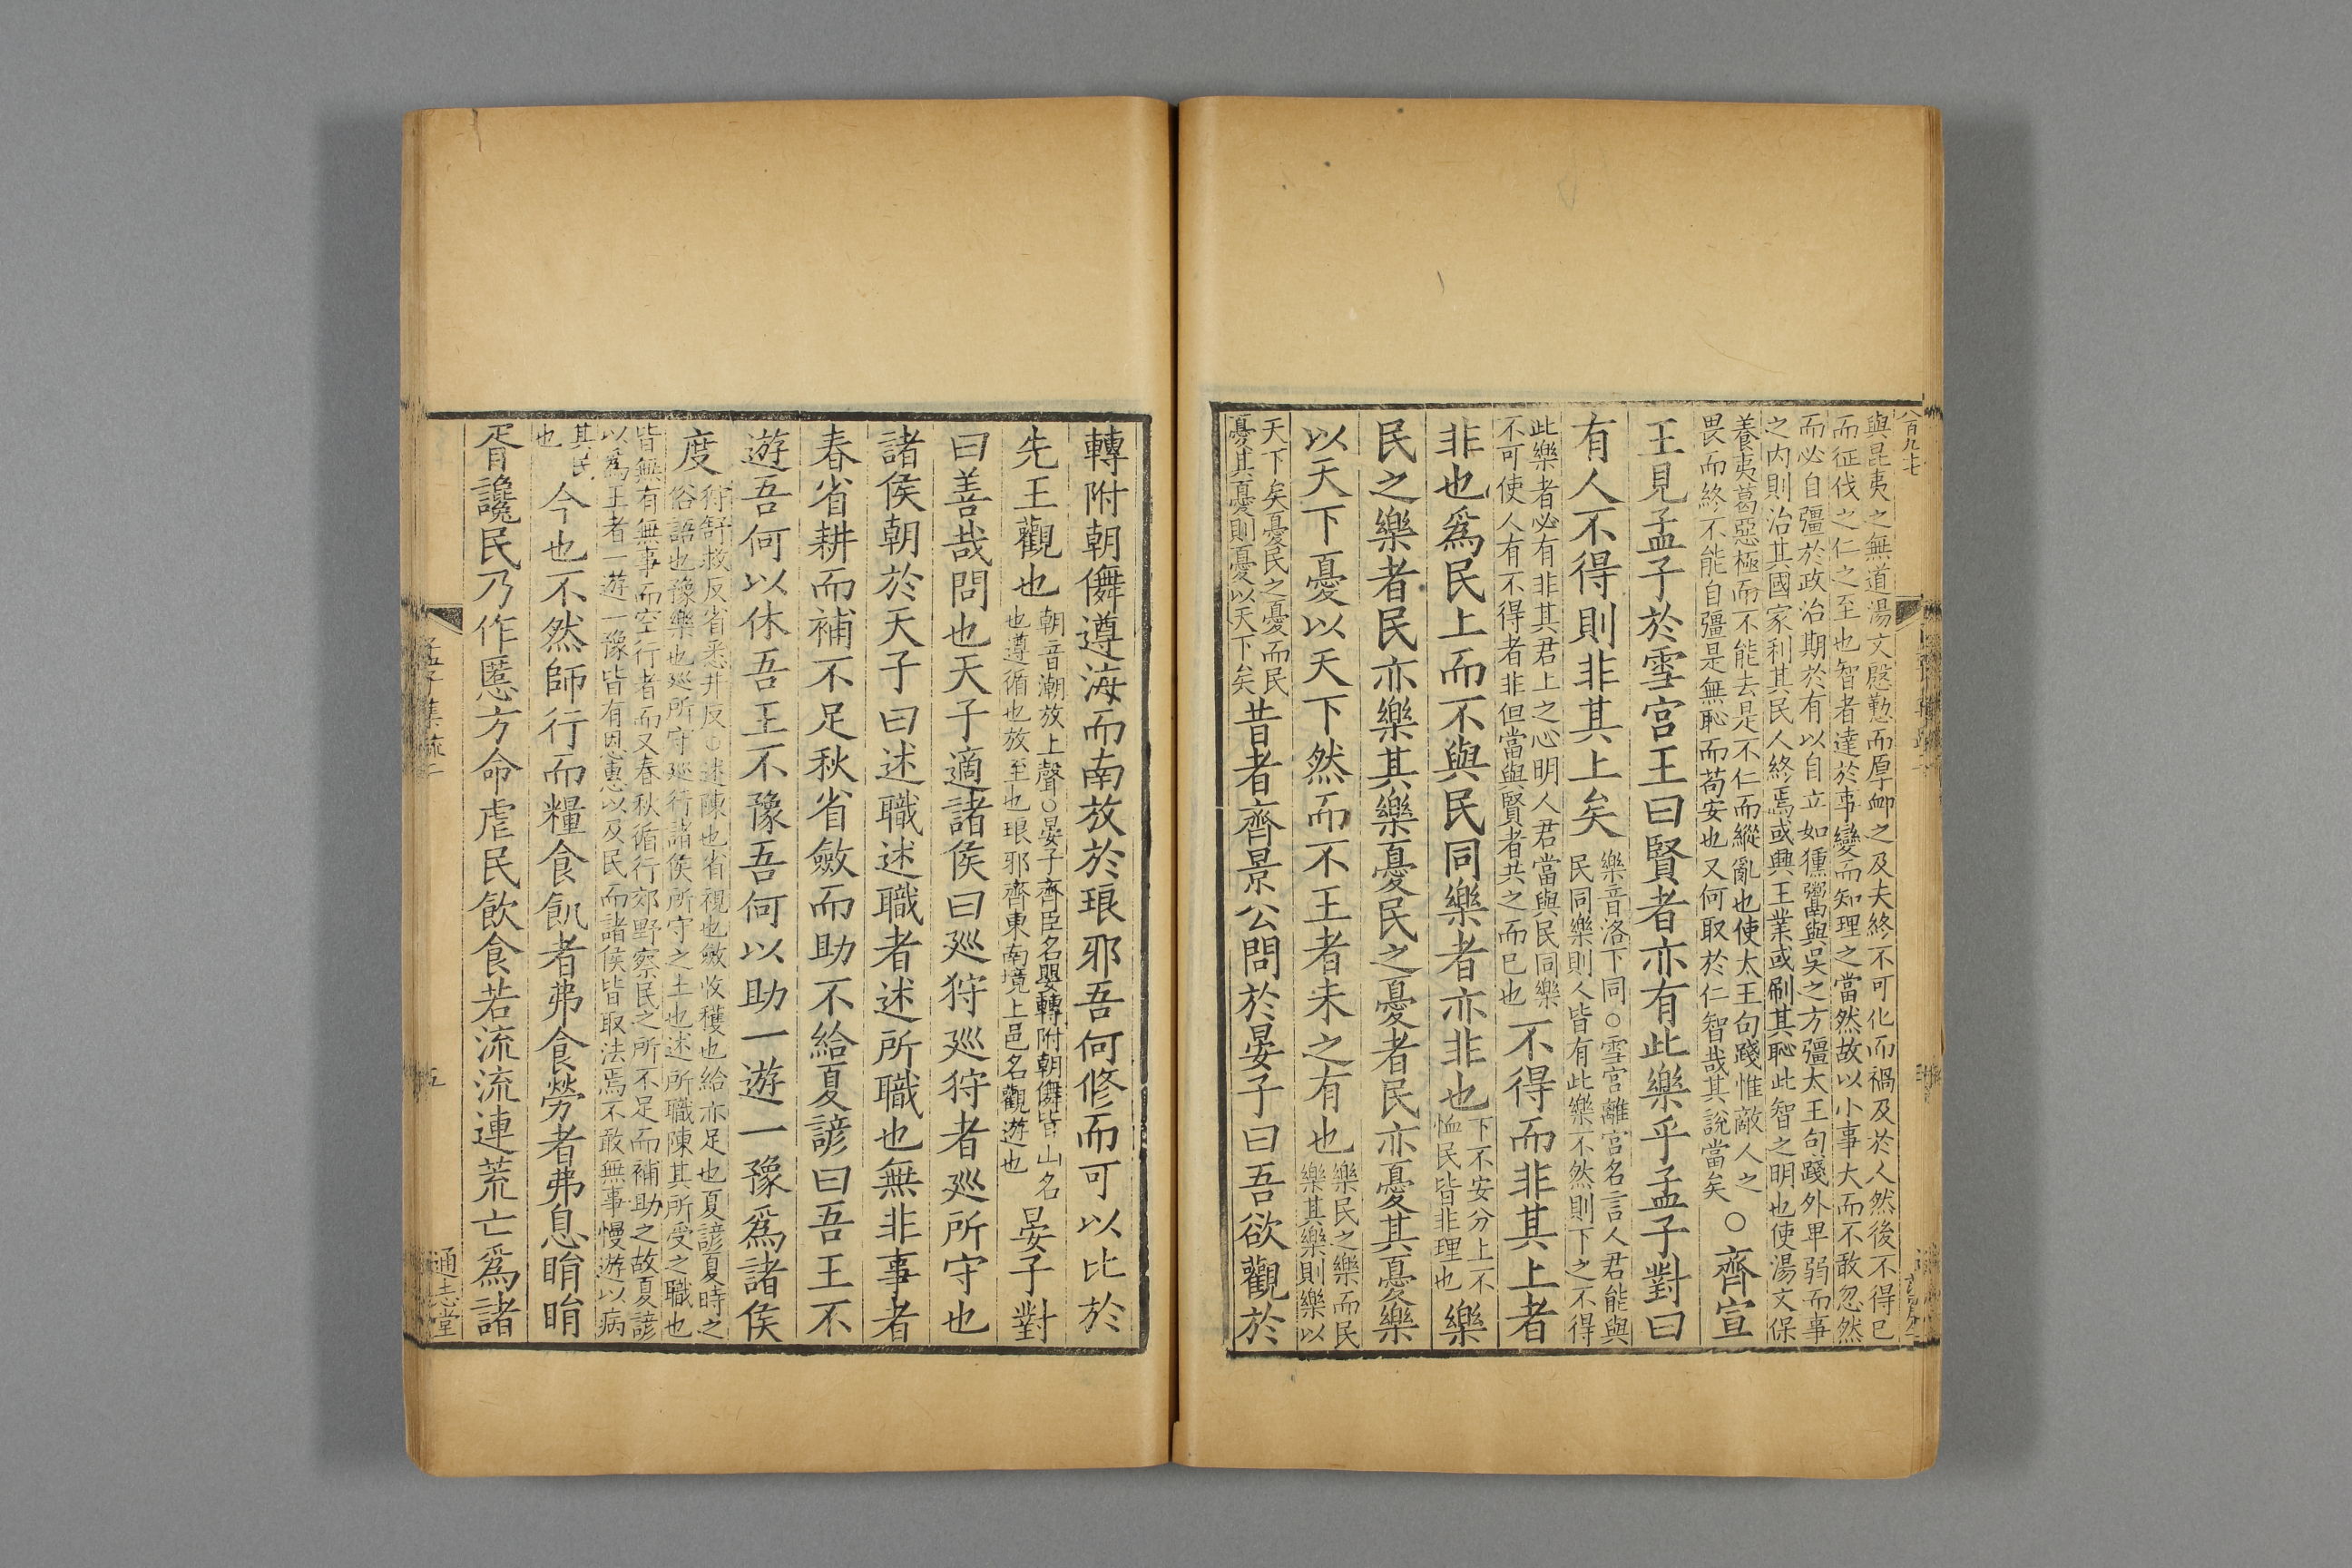 八百九七
與昆夷之無道湯文慇懃而厚卹之及夫終不可化而禍及於人然後不得已
而征伐之仁之至也智者達於事變而知理之當然故以小事大而不敢忽然
而必自彊於政治期於有以自立如獯鬻與吳之方彊太王句踐外卑弱而事
之內則治其國家利其民人終焉或興王業或刷其恥此智之明也使湯文保
養夷葛惡極而不能去是不仁而縱亂也使太王句踐惟敵人之
畏而終不能自彊是無恥而苟安也又何取於仁智哉其說當矣
○齊宣
王見孟子於雪宮王曰賢者亦有此樂乎孟子對曰
有人不得則非其上矣
樂音洛下同○雪宮離宮名言人君能與
民同樂則人皆有此樂不然則下之不得
此樂者必有非其君上之心明人君當與民同樂
不可使人有不得者非但當與賢者共之而已也
不得而非其上者
非也爲民上而不與民同樂者亦非也
下不安分上不
恤民皆非理也
樂
民之樂者民亦樂其樂憂民之憂者民亦憂其憂樂
以天下憂以天下然而不王者未之有也
樂民之樂而民
樂其樂則樂以
天下矣憂民之憂而民
憂其憂則憂以天下矣
昔者齊景公問於晏子曰吾欲觀於
轉附朝儛遵海而南放於琅邪吾何修而可以比於
先王觀也
朝音潮放上聲○晏子齊臣名嬰轉附朝儛皆山名
也遵循也放至也琅邪齊東南境上邑名觀遊也
晏子對
曰善哉問也天子適諸侯曰巡狩巡狩者巡所守也
諸侯朝於天子曰述職述職者述所職也無非事者
春省耕而補不足秋省斂而助不給夏諺曰吾王不
遊吾何以休吾王不豫吾何以助一遊一豫爲諸侯
度
狩舒救反省悉井反○述陳也省視也斂收穫也給亦足也夏諺夏時之
俗語也豫樂也巡所守巡行諸侯所守之土也述所職陳其所受之職也
皆無有無事而空行者而又春秋循行郊野察民之所不足而補助之故夏諺
以爲王者一遊一豫皆有恩惠以及民而諸侯皆取法焉不敢無事慢遊以病
其民
也
今也不然師行而糧食飢者弗食勞者弗息睊睊
胥讒民乃作慝方命虐民飲食若流流連荒亡爲諸
孟子集疏二
五
通志堂